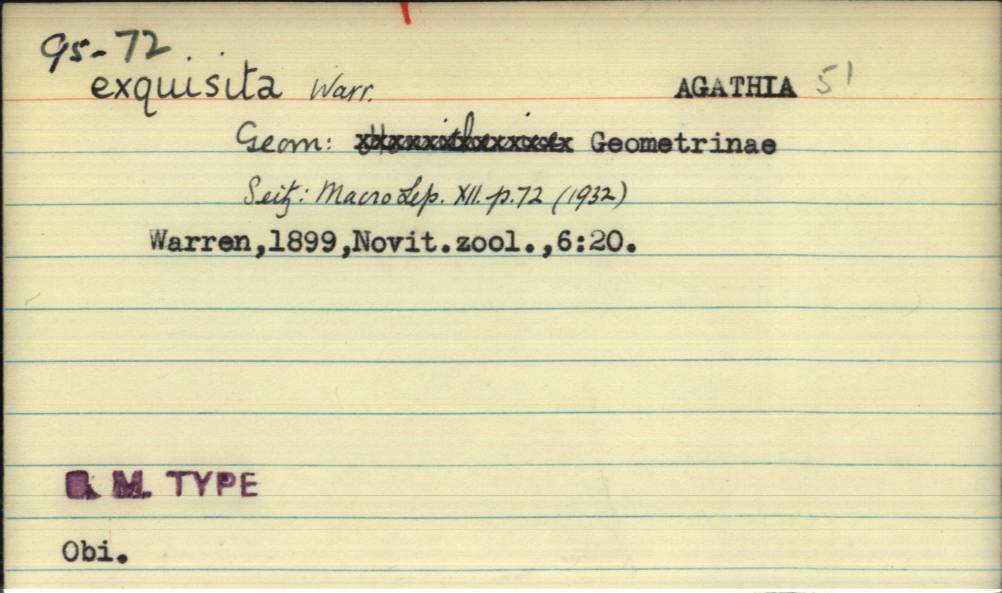 95-72
exquisita Warr. AGATHIA 51
Geom: Geometrinae
Seitz: Macro Lep. XII. p.72 (1932)
Warren,1899,Novit.zool.,6:20.
B. M. TYPE
Obi.